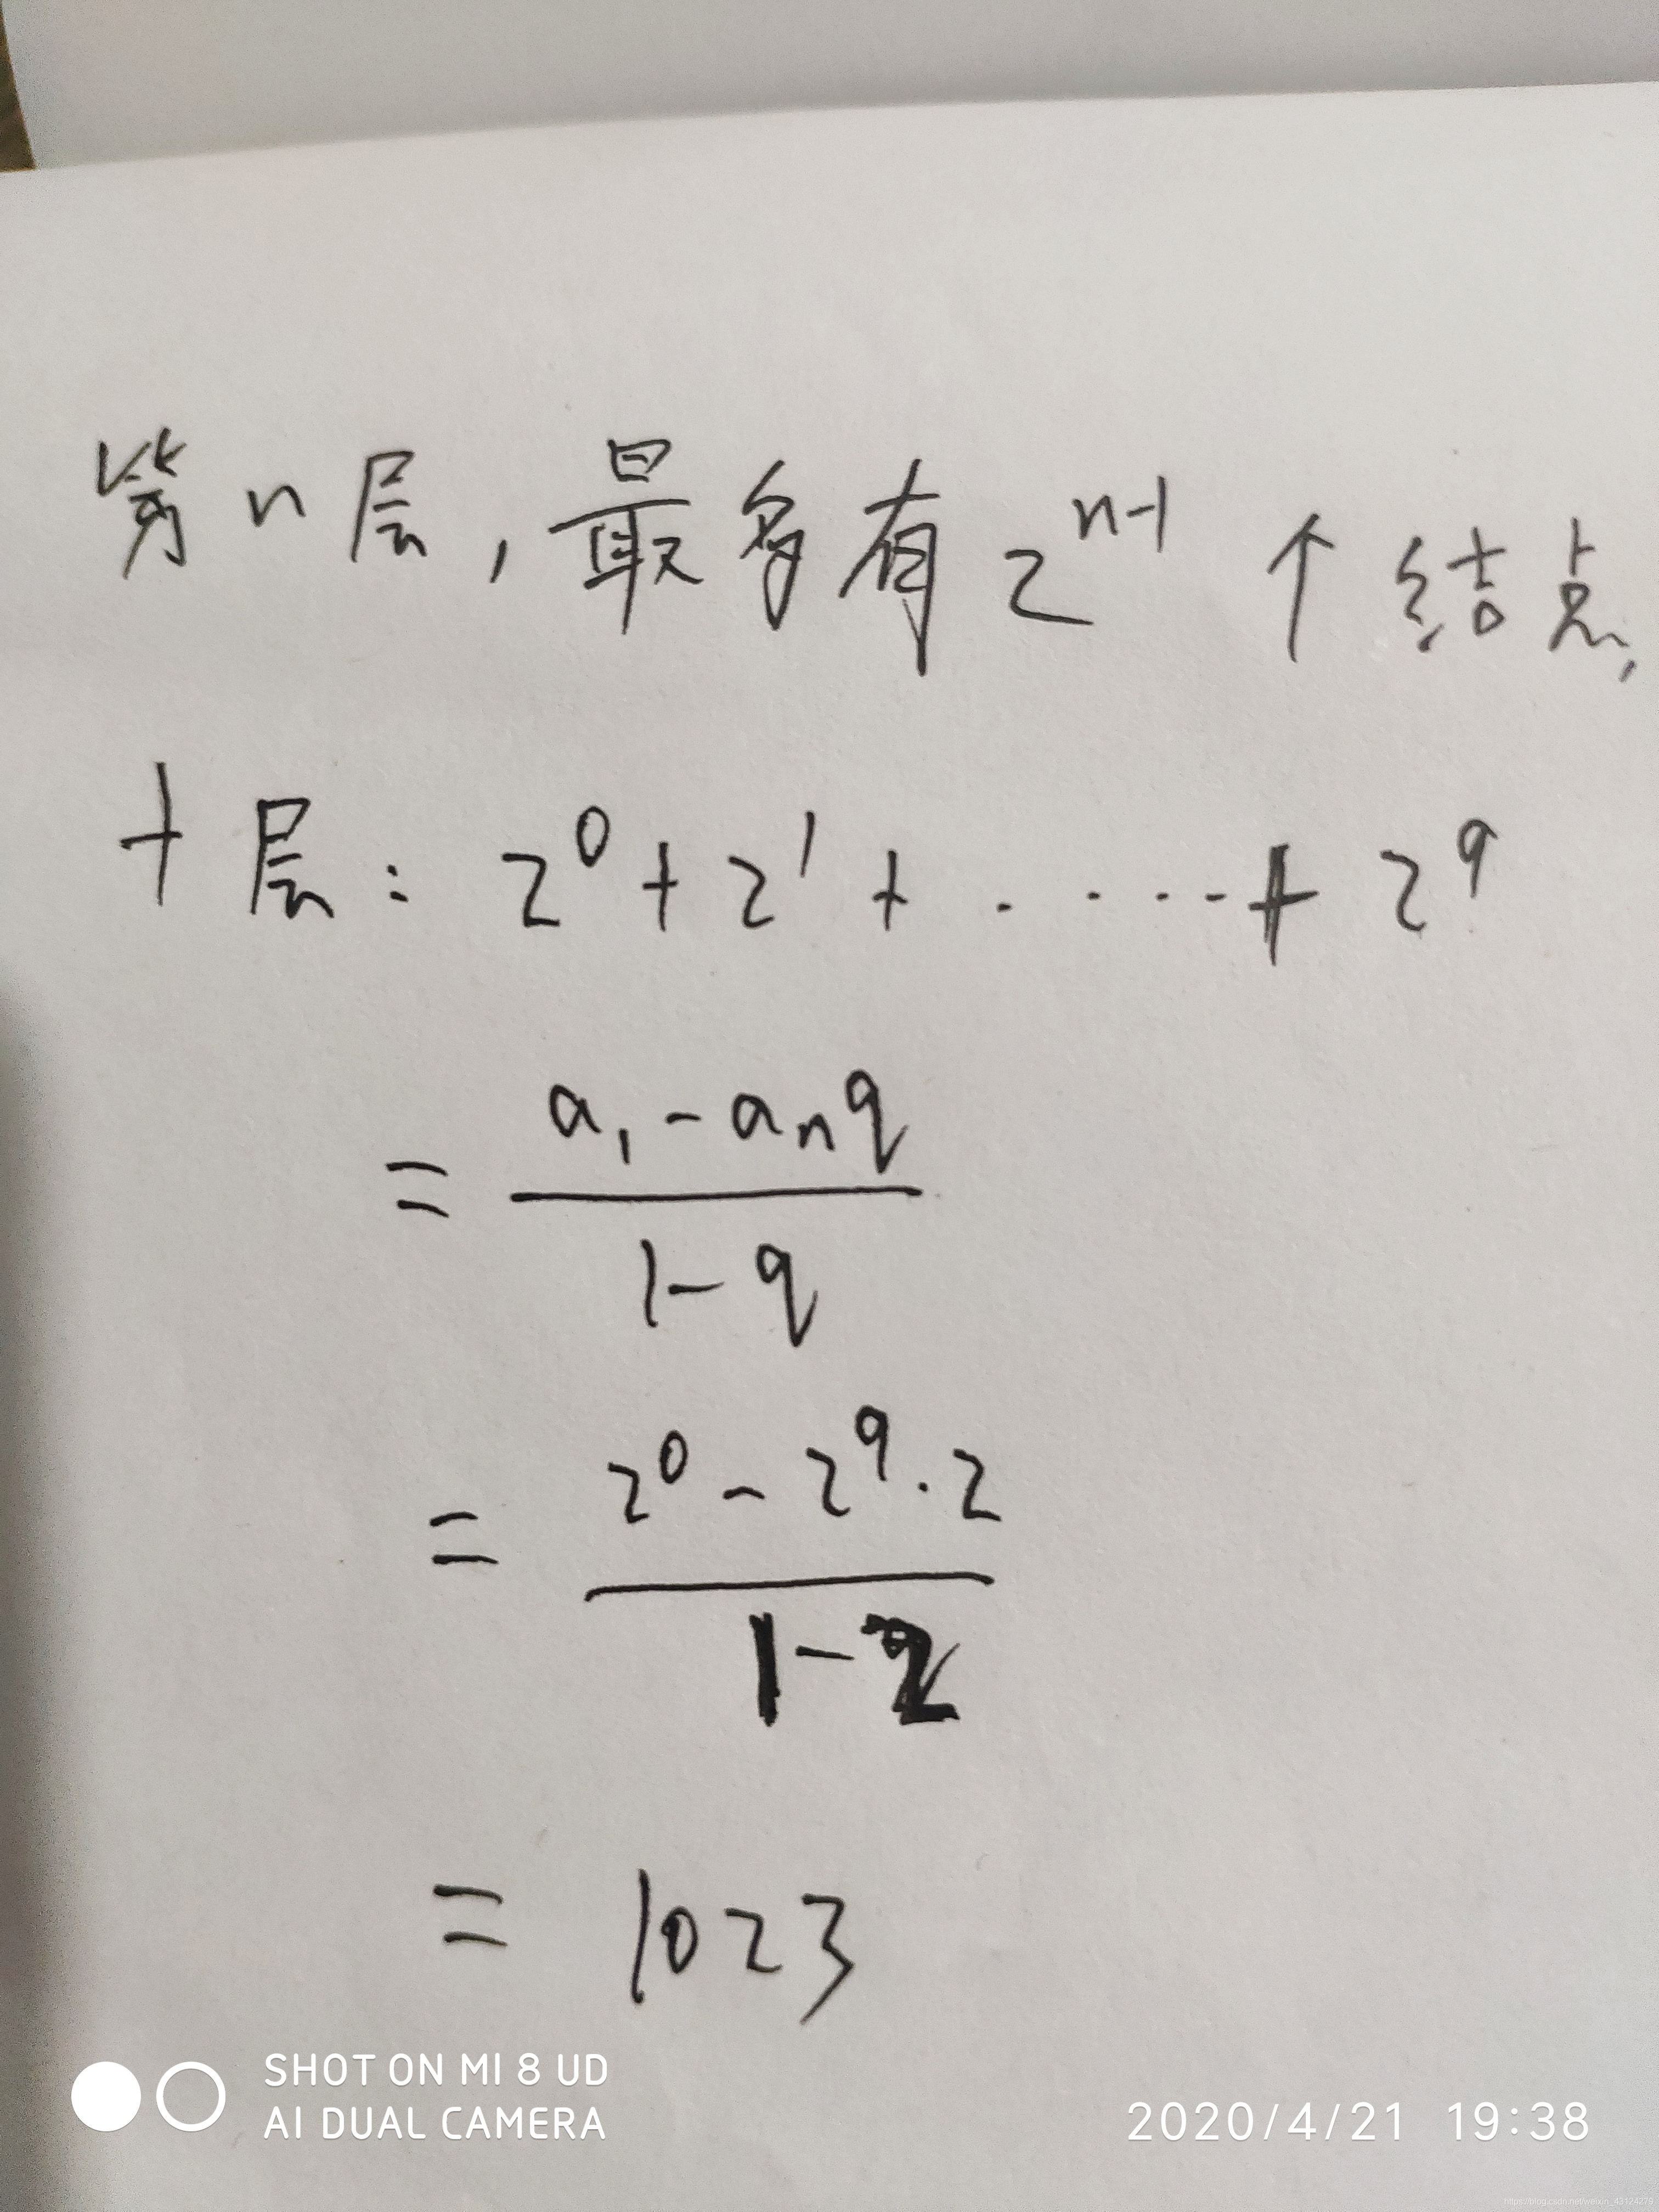 第n层,最多有2^{n-1}个结点,
十层:2^0+2^1+.....+2^9
=\frac{a_1-a_nq}{1-q}
=\frac{2^0-2^9·2}{1-2}
=1023
SHOT ON MI 8 UD
AI DUAL CAMERA
2020/4/21 19:38
https://blog.csdn.net/weixin_43124279